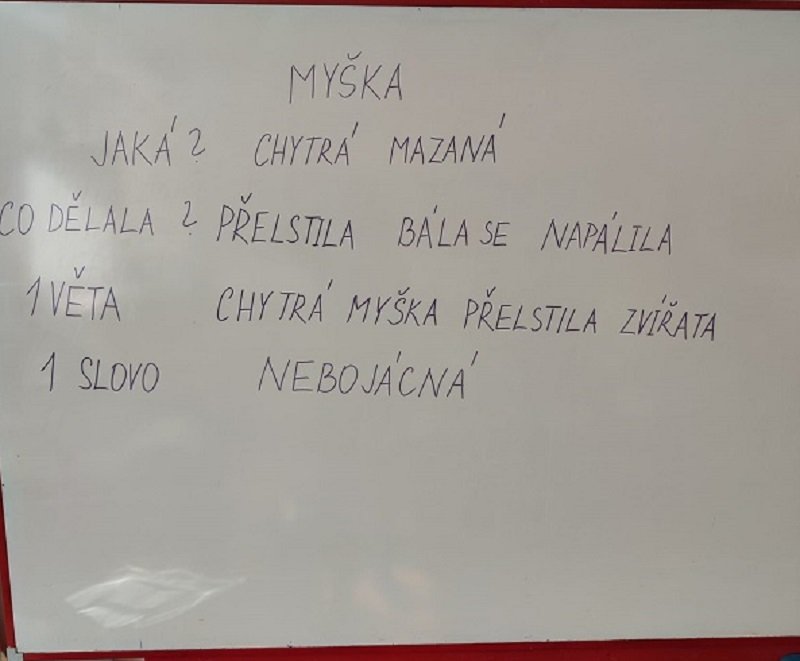 MYŠKA
JAKÁ? CHYTRÁ MAZANÁ
CO DĚLALA? PŘELSTILA BÁLA SE NAPÁLILA
1 VĚTA CHYTRÁ MYŠKA PŘELSTILA ZVÍŘATA
1 SLOVO NEBOJÁCNÁ